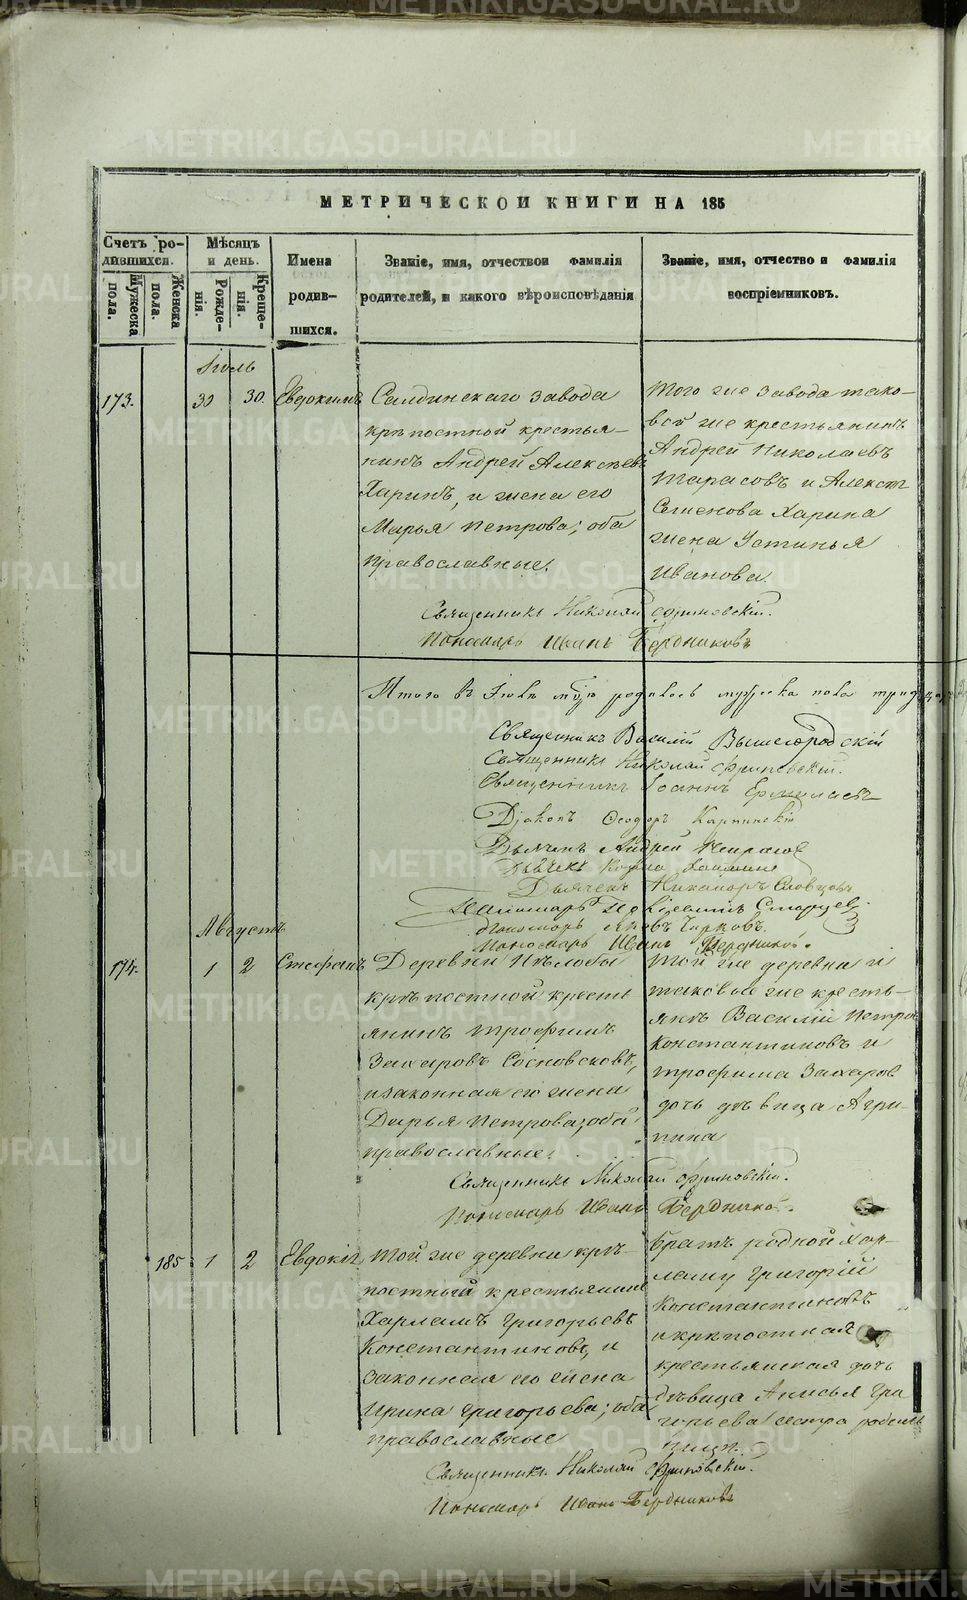 МЕТРИЧЕСКОЙ КНИГИ НА 185
Счетъ ро-
дившихся.
Мужеска
пола.
Женска
пола.
Мѣсяцъ
и день.
Рожде-
нія.
Креще-
нія.
Имена
родив-
шихся.
Званіе, имя, отчествои фамилія
родителей, и какого вѣроисповѣданія
Званіе, имя, отчество и фамилія
воспріемниковъ.
Іюль
173. 30 30. Евдокимъ
Салдинскаго завода
крѣпостной крестья-
нинъ Андрей Алексѣевъ
Харинъ, и жена его
Марья Петрова; оба
православные.
Того же завода тако-
вой же крестьянинъ
Андрей Николаевъ
Тарасовъ и Алексѣя
Семенова Харина
жена Устинья
Иванова.
Священникъ Николай
Пономарь Иванъ Бердниковъ
Итого въ Іюлѣ родилось мужеска пола
Священникъ Василій Вышегородскій
Священникъ Николай
Священникъ Іоаннъ
Діаконъ Ѳеодоръ
Дьячекъ Андрей
Дьячекъ
Дьячекъ Никаноръ Словцовъ
Пономарь
Пономарь Яковъ
Пономарь Иванъ Бердниковъ.
Августъ
174. 1 2 Стефанъ
Деревни
крѣпостной кресть
янинъ Трофимъ
Захаровъ Сосновсковъ,
и законная его жена
Дарья Петрова; оба
православные.
Той же деревни и
таковые же кресть-
янъ Василій Петров
Константиновъ и
Трофима Захаров
дочь дѣвица Агри-
пина
Священникъ Николай
Пономарь Иванъ Бердниковъ.
185 1 2 Евдокія
Той же деревни крѣ-
постный крестьянинъ
Харламъ Григорьевъ
Константиновъ, и
законная его жена
Ирина Григорьева; оба
православные
Братъ родной Хар-
ламу Григорій
Константиновъ
и крѣпостная
крестьянская дочь
дѣвица Анисья Гри
горьева сестра
Священникъ Николай
Пономарь Иванъ Бердниковъ
METRIKI.GASO-URAL.RU